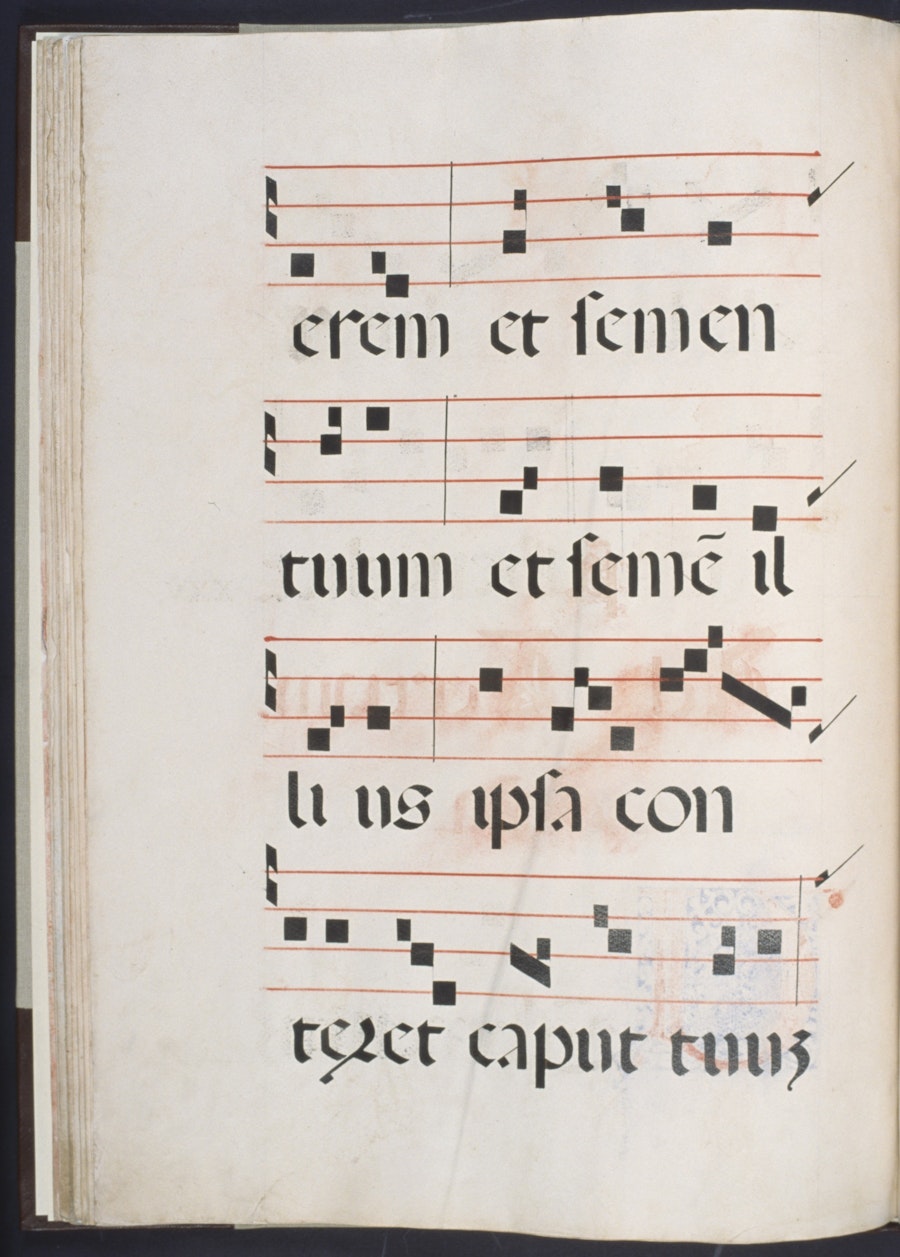 erem et ſemen
tuum et ſemē il
li us ipſa con
teꝛet caput tuuʒ